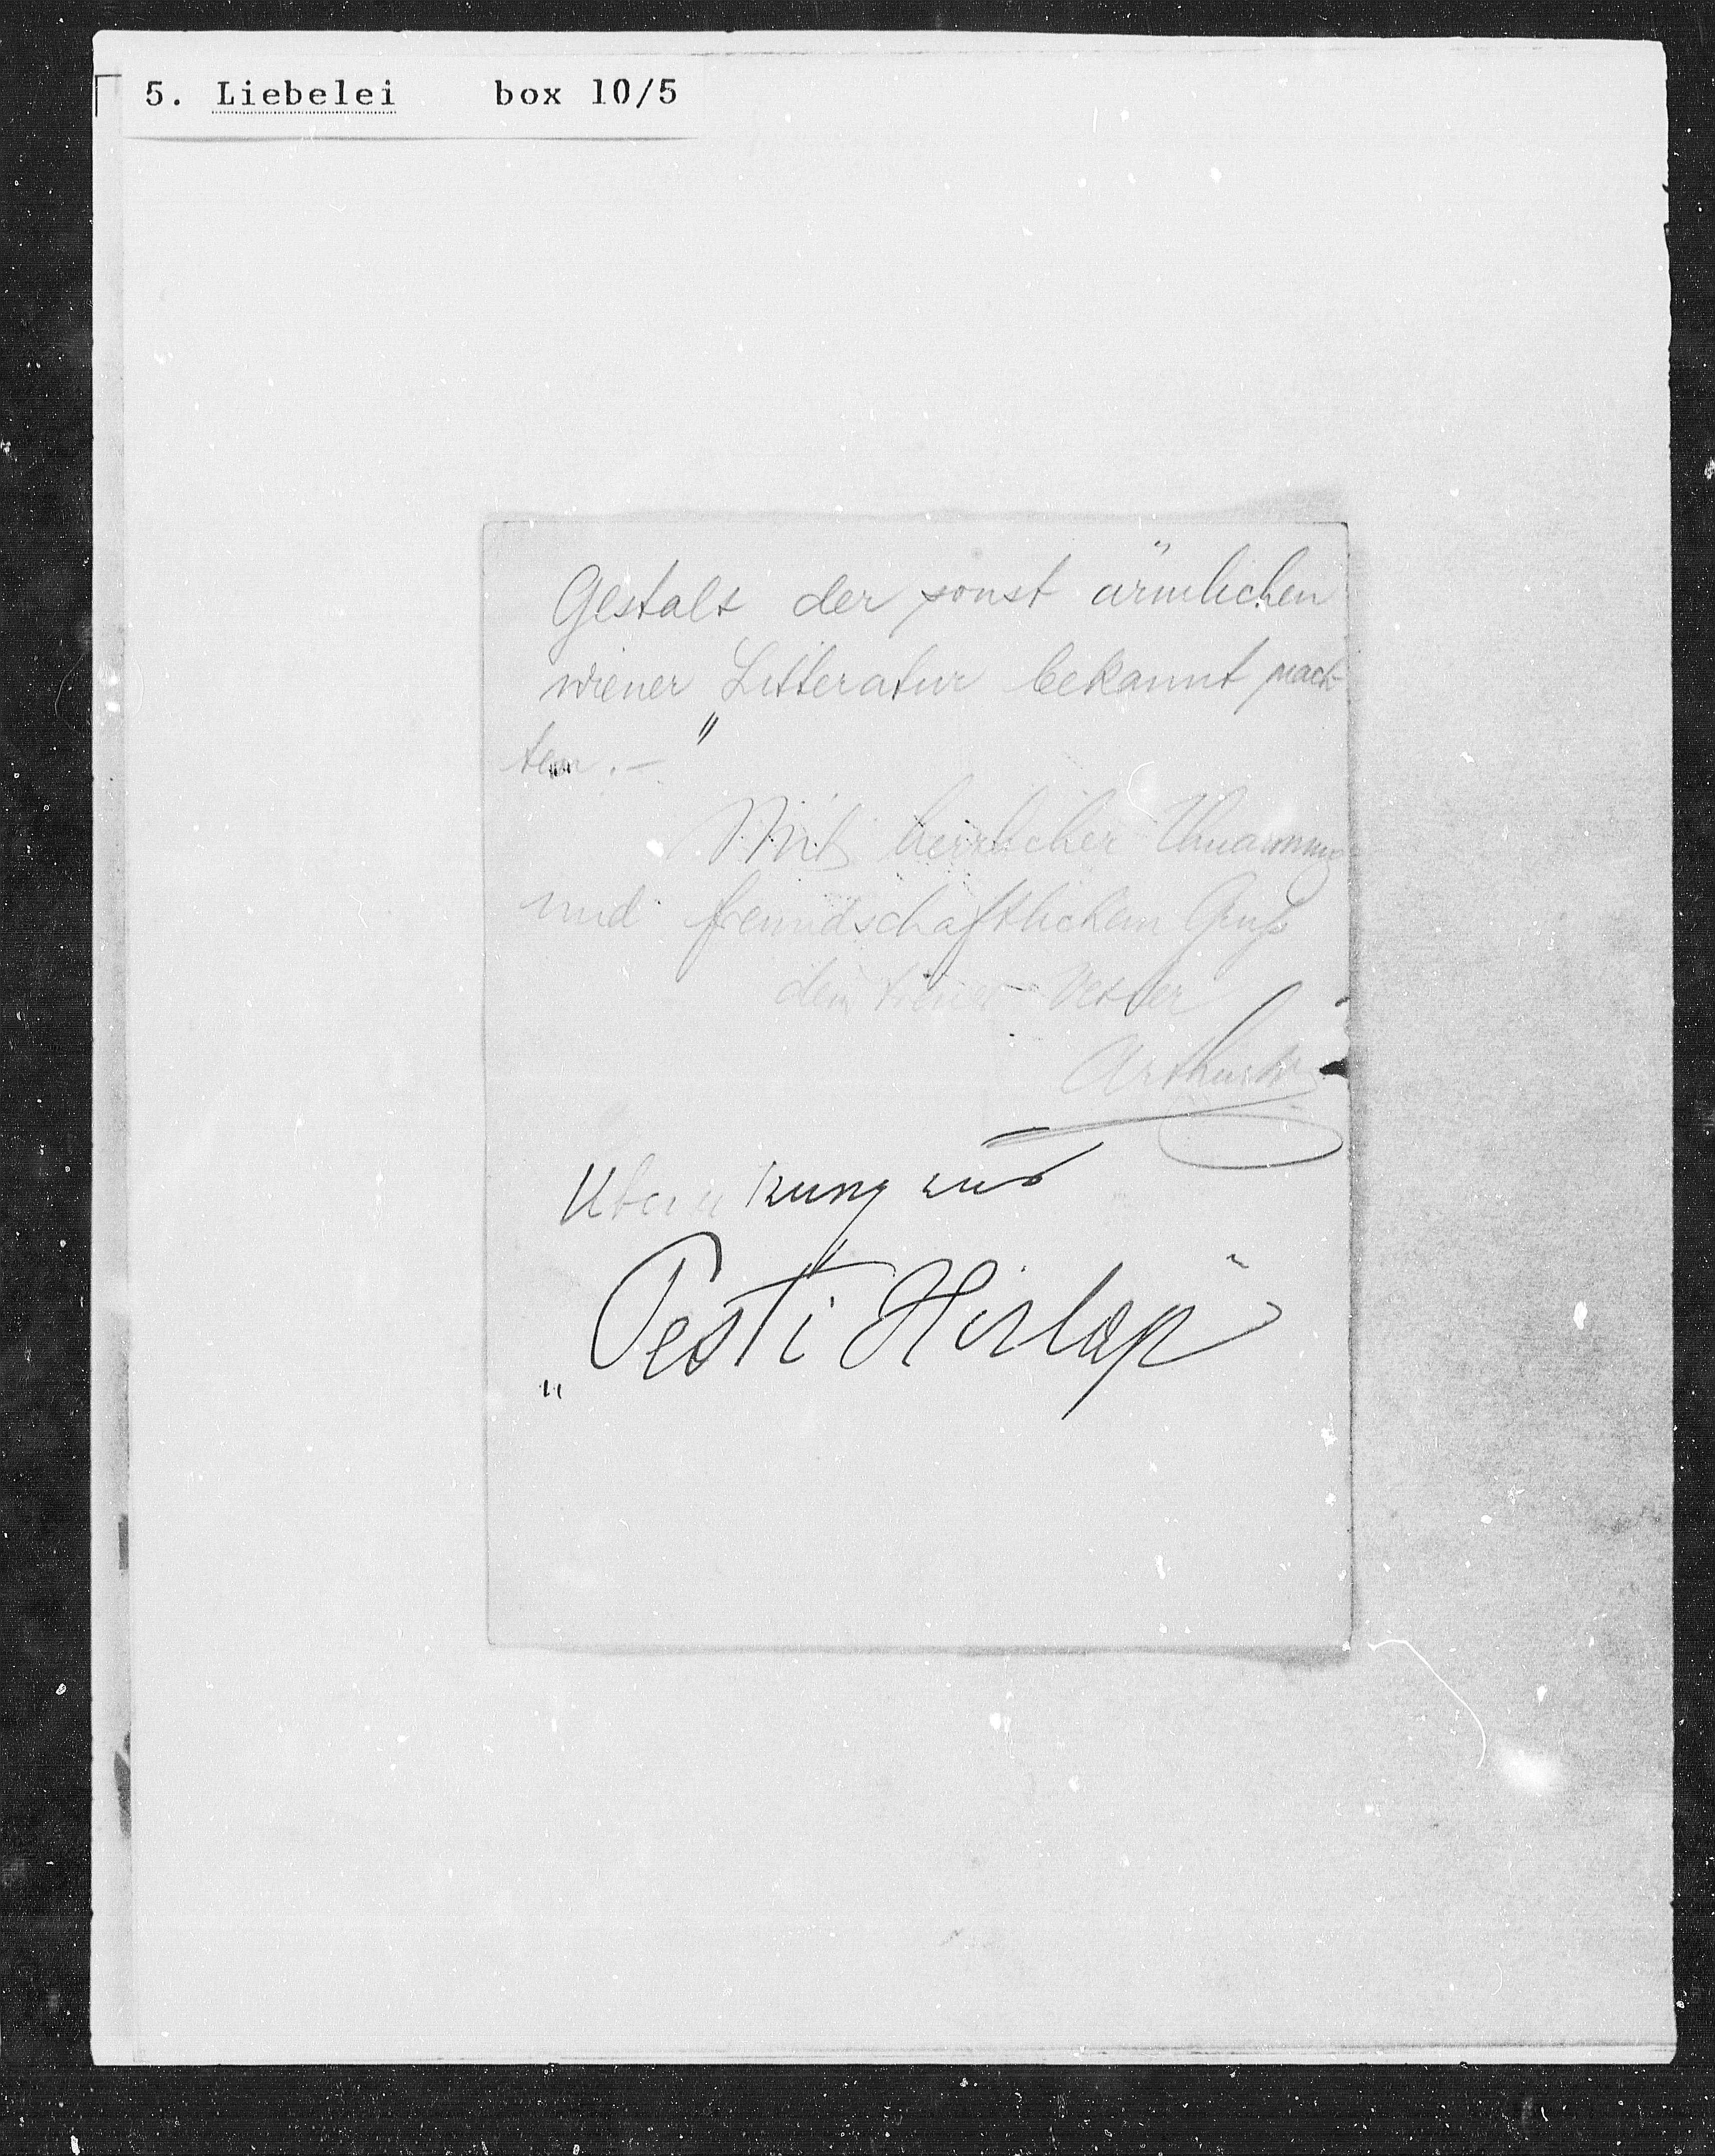 5. Liebelei box 10/5
Gestalt der sonst ärmlichen
wiener Litteratur bekannt mach-
ten.-"
Mit herzlicher Umarmung
und freundschaftlichem Gruß
dein Vetter
Arthur
Übersetzung aus
„Pesti Hirlap"